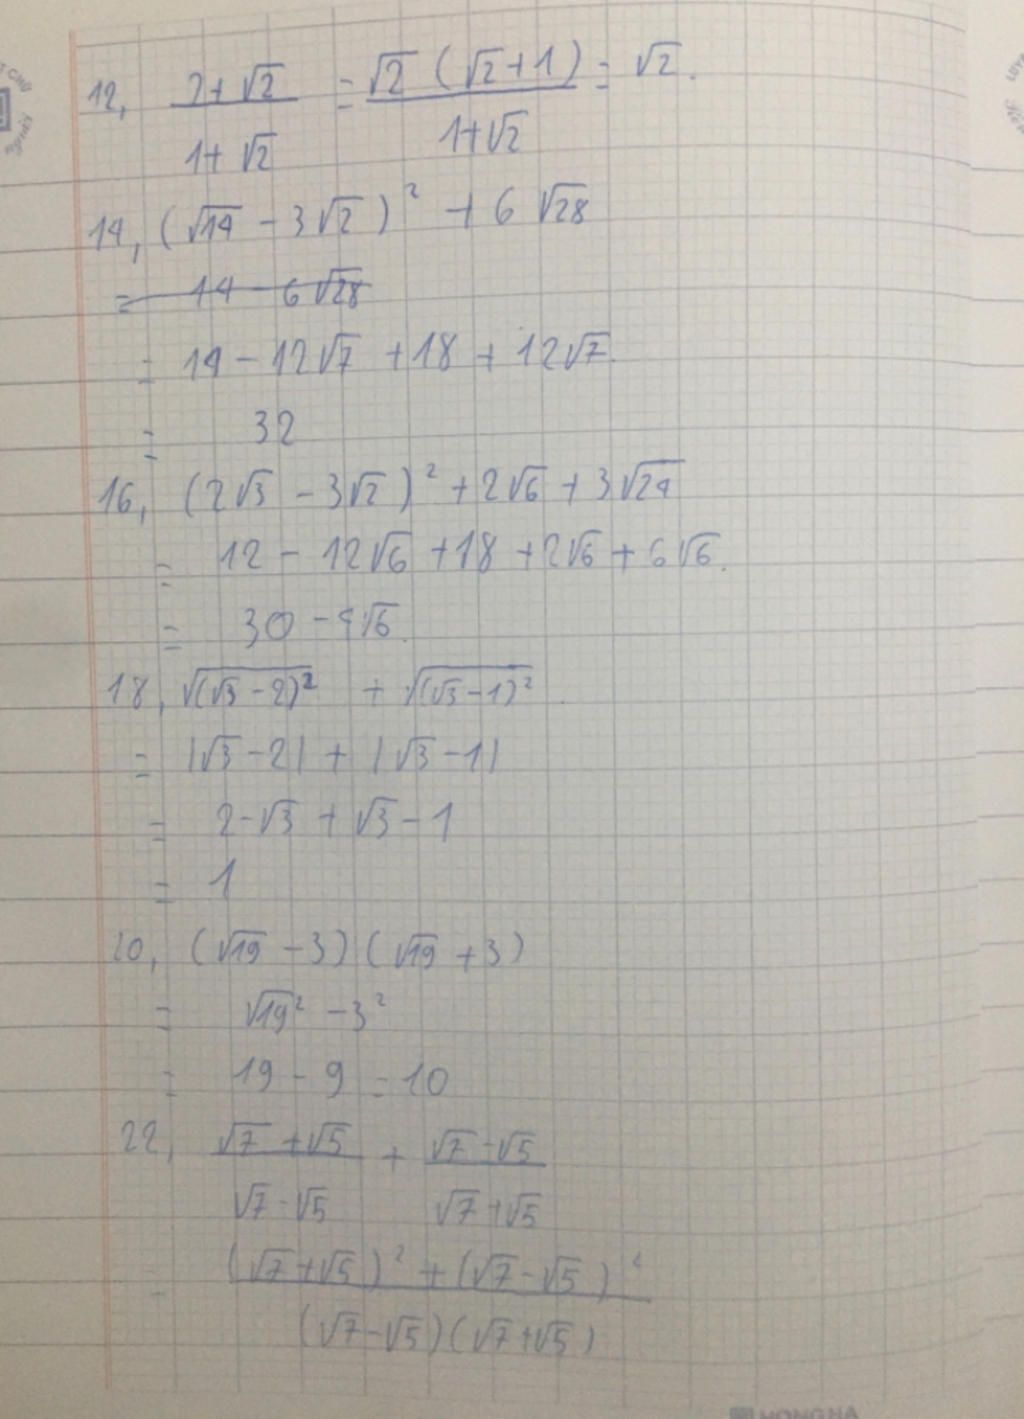 12, (2+√2)/(1+√2) = (√2 (√2+1))/(1+√2) = √2.
14, (√14 - 3√2)² + 6√28
= 14 - 6√28
= 14 - 12√7 + 18 + 12√7.
= 32
16, (2√3 - 3√2)² + 2√6 + 3√24
= 12 - 12√6 + 18 + 2√6 + 6√6.
= 30 - 4√6.
18, √((√3 - 2)²) + √((√3 - 1)²).
= |√3 - 2| + |√3 - 1|
= 2 - √3 + √3 - 1
= 1
20, (√19 - 3)(√19 + 3)
= √19² - 3²
= 19 - 9 = 10
22, (√7 + √5)/(√7 - √5) + (√7 - √5)/(√7 + √5)
= ((√7 + √5)² + (√7 - √5)²)/((√7 - √5)(√7 + √5))